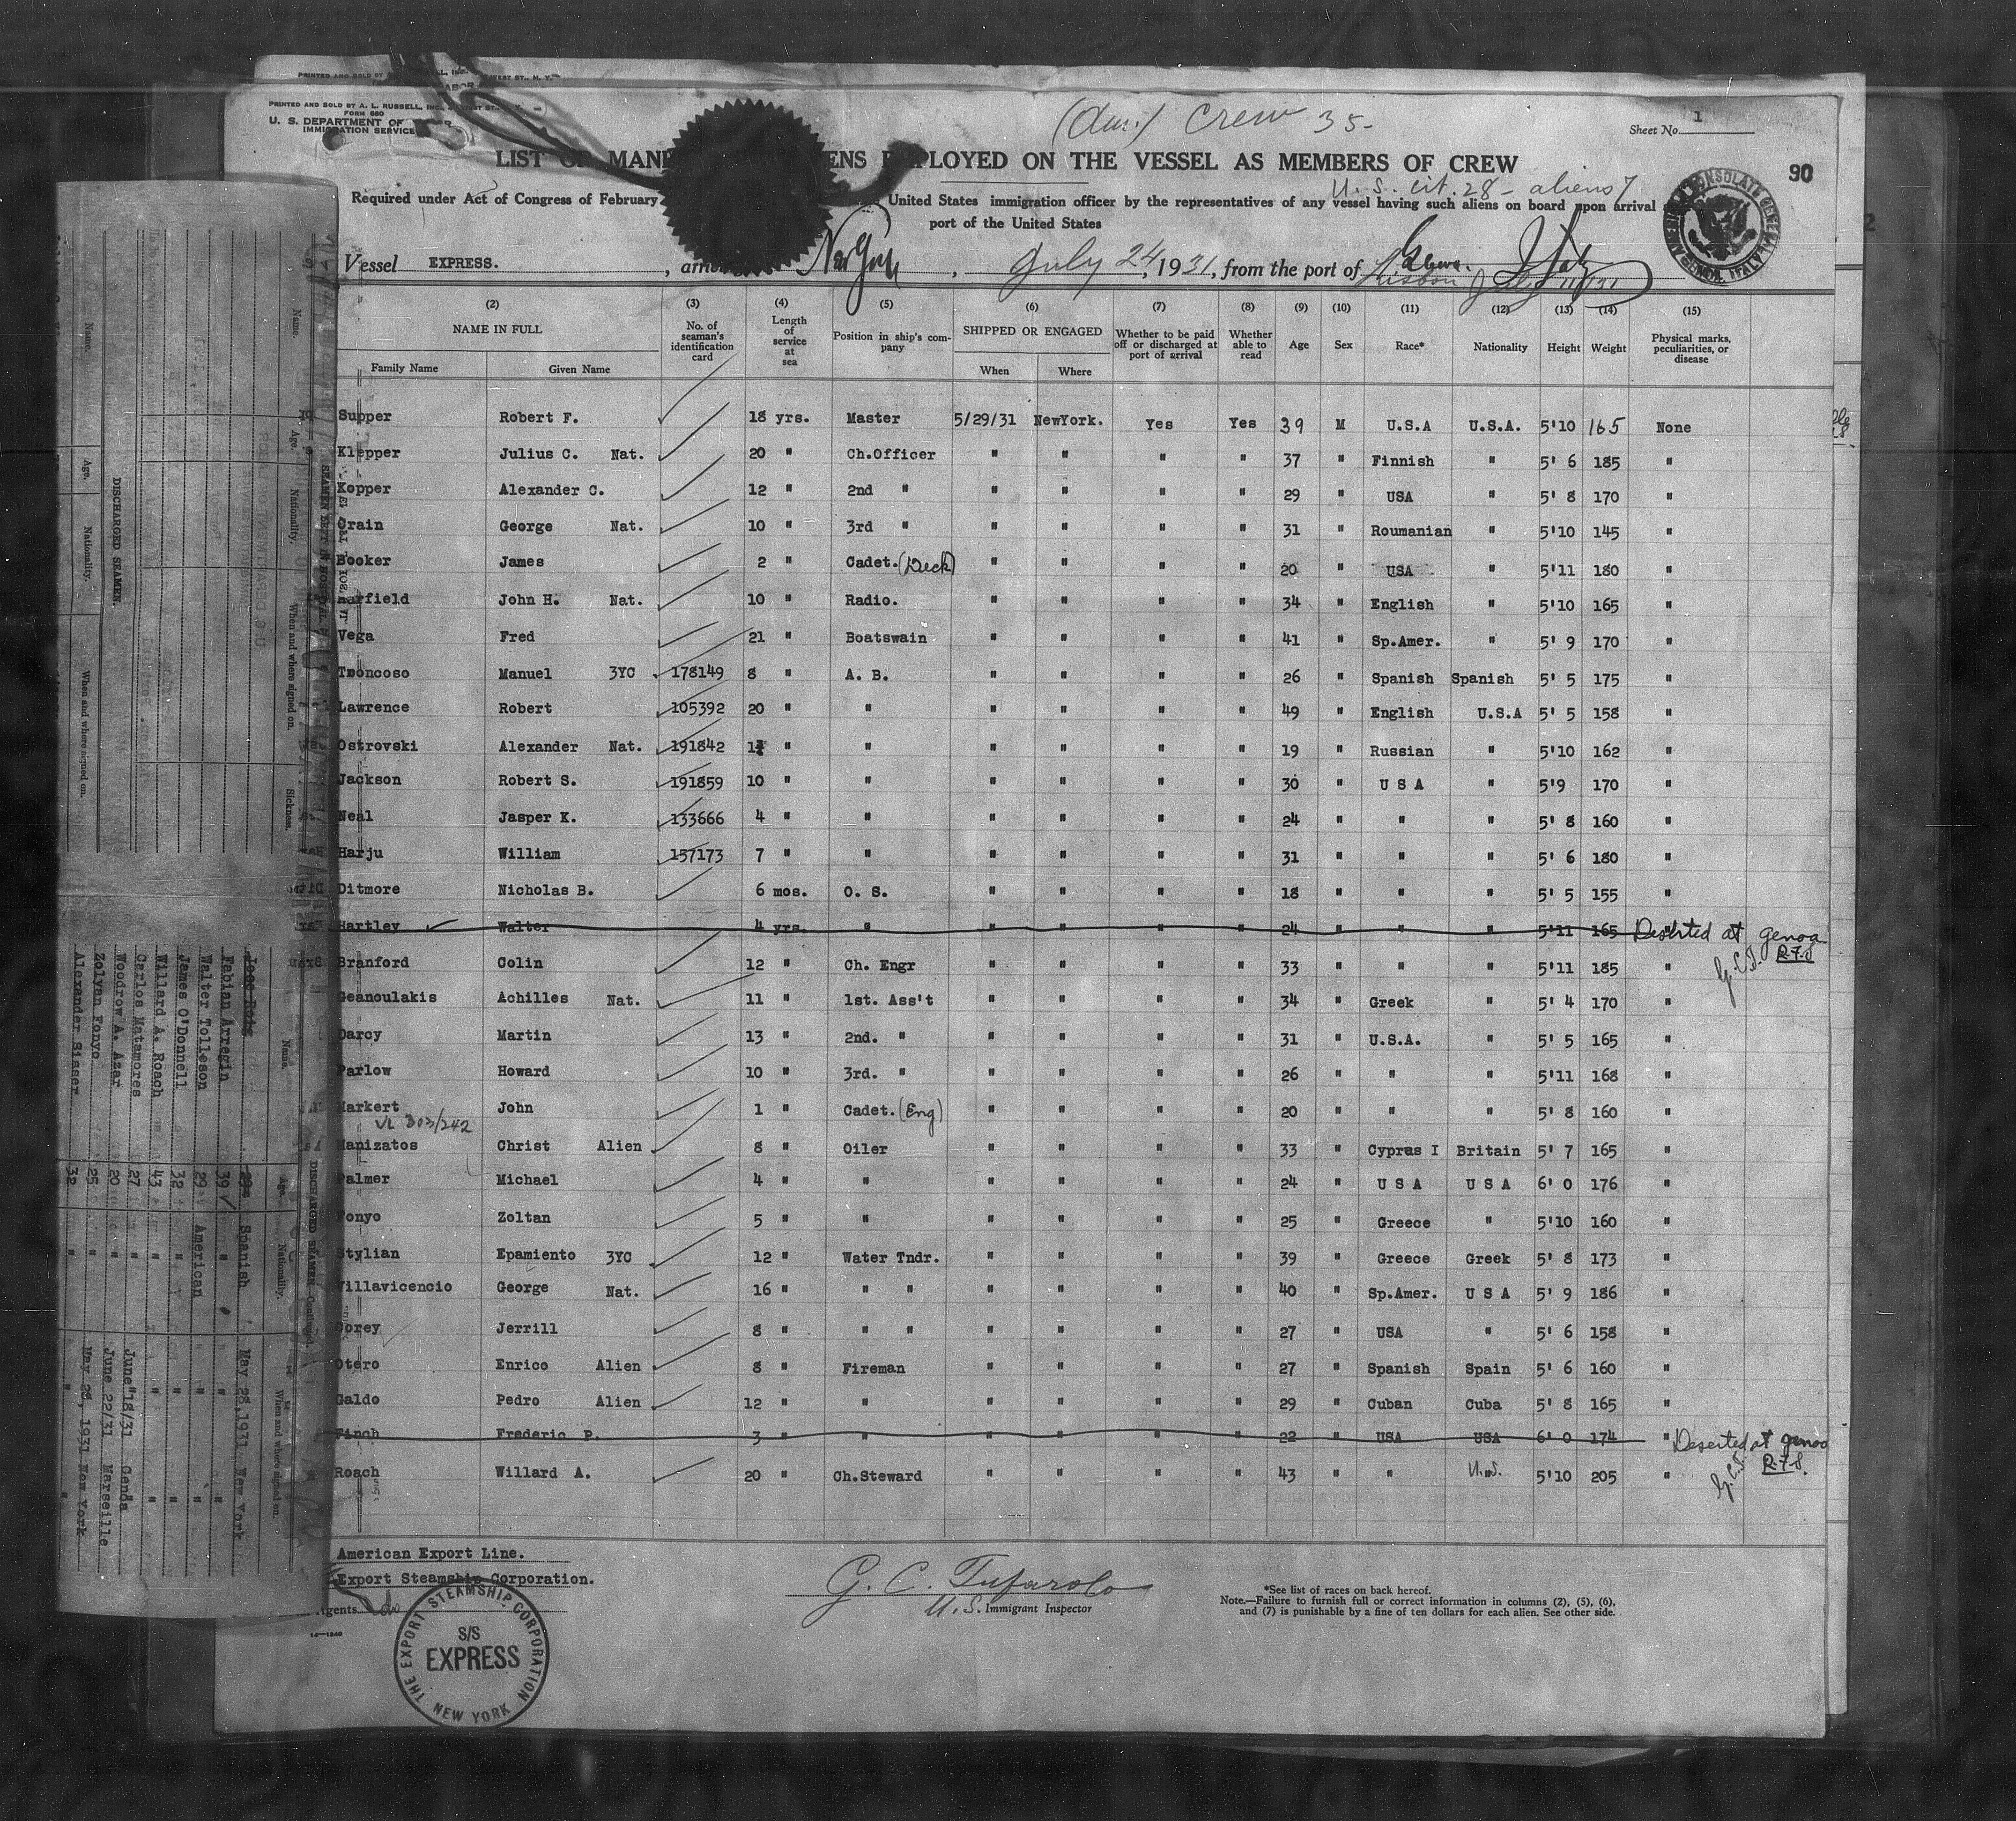 PRINTED AND SOLD BY A. L. RUSSELL, INC.
FORM 680
U. S. DEPARTMENT OF
IMMIGRATION SERVICE
(Am.) Crew 35-
Sheet No. 1
90
LIST OF EMPLOYED ON THE VESSEL AS MEMBERS OF CREW
U. S. cit. 28 - aliens 7
Required under Act of Congress of February United States immigration officer by the representatives of any vessel having such aliens on board upon arrival
port of the United States
Vessel EXPRESS. , New York , July 24, 1931, from the port of Genoa. Italy
Lisbon July 11/31
(2) (3) (4) (5) (6) (7) (8) (9) (10) (11) (12) (13) (14) (15)
NAME IN FULL No. of seaman's identification card Length of service at sea Position in ship's company SHIPPED OR ENGAGED Whether to be paid off or discharged at port of arrival Whether able to read Age Sex Race* Nationality Height Weight Physical marks, peculiarities, or disease
Family Name Given Name When Where
Supper Robert F. 18 yrs. Master 5/29/31 NewYork. Yes Yes 39 M U.S.A U.S.A. 5'10 165 None
Klepper Julius C. Nat. 20 " Ch.Officer " " " " 37 " Finnish " 5' 6 185 "
Kopper Alexander C. 12 " 2nd " " " " " 29 " USA " 5' 8 170 "
Crain George Nat. 10 " 3rd " " " " " 31 " Roumanian " 5'10 145 "
Booker James 2 " Cadet.(Deck) " " " " 20 " USA " 5'11 180 "
John H. Nat. 10 " Radio. " " " " 34 " English " 5'10 165 "
Vega Fred 21 " Boatswain " " " " 41 " Sp.Amer. " 5' 9 170 "
Troncoso Manuel 3YC 178149 8 " A. B. " " " " 26 " Spanish Spanish 5' 5 175 "
Lawrence Robert 105392 20 " " " " " " 49 " English U.S.A 5' 5 158 "
Ostrovski Alexander Nat. 191842 " " " " " " 19 " Russian " 5'10 162 "
Jackson Robert S. 191859 10 " " " " " " 30 " U S A " 5'9 170 "
Neal Jasper K. 133666 4 " " " " " " 24 " " " 5' 8 160 "
Harju William 157173 7 " " " " " " 31 " " " 5' 6 180 "
Ditmore Nicholas B. 6 mos. O. S. " " " " 18 " " " 5' 5 155 "
Hartley Walter 4 yrs. " " " " " 24 " " " 5'11 165 " Deserted at genoa
R-7-8
G.C.T.
Branford Colin 12 " Ch. Engr " " " " 33 " " " 5'11 185 "
Geanoulakis Achilles Nat. 11 " 1st. Ass't " " " " 34 " Greek " 5' 4 170 "
Darcy Martin 13 " 2nd. " " " " " 31 " U.S.A. " 5' 5 165 "
Parlow Howard 10 " 3rd. " " " " " 26 " " " 5'11 168 "
Markert John 1 " Cadet.(Eng) " " " " 20 " " " 5' 8 160 "
303/242
Manizatos Christ Alien 8 " Oiler " " " " 33 " Cyprus I Britain 5' 7 165 "
Palmer Michael 4 " " " " " " 24 " U S A U S A 6' 0 176 "
Fonyo Zoltan 5 " " " " " " 25 " Greece " 5'10 160 "
Stylian Epamiento 3YC 12 " Water Tndr. " " " " 39 " Greece Greek 5' 8 173 "
Villavicencio George Nat. 16 " " " " " " " 40 " Sp.Amer. U S A 5' 9 186 "
Corey Jerrill 8 " " " " " " " 27 " USA " 5' 6 158 "
Otero Enrico Alien 8 " Fireman " " " " 27 " Spanish Spain 5' 6 160 "
Galdo Pedro Alien 12 " " " " " " 29 " Cuban Cuba 5' 8 165 "
Finch Frederic P. 3 " " " " " " 22 " USA USA 6' 0 174 " Deserted at genoa
R-7-8.
G.C.T.
Roach Willard A. 20 " Ch.Steward " " " " 43 " " U.S. 5'10 205 "
American Export Line.
Export Steamship Corporation.
Agents do
14-1240
G. C. Tufarolo
U.S. Immigrant Inspector
*See list of races on back hereof.
Note.—Failure to furnish full or correct information in columns (2), (5), (6),
and (7) is punishable by a fine of ten dollars for each alien. See other side.
THE EXPORT STEAMSHIP CORPORATION
S/S
EXPRESS
NEW YORK
AMERICAN CONSULATE GENERAL
GENOA, ITALY
DISCHARGED SEAMEN.
Name. Age. Nationality. When and where signed on.
Name. Age. Nationality. When and where signed on. Sickness.
DISCHARGED SEAMEN
Name. Age. Nationality. When and where signed on.
29 Spanish May 28,1931 New York
Fabian Arregin 39 " " "
Walter Tolleson 29 American " "
James O'Donnell 32 " " "
Willard A. Roach 43 " " "
Carlos Matamores 27 " June 18/31 Genoa
Woodrow A. Azar 20 " June 22/31 Marseille
Zolyan Fonyo 25 " May 28, 1931 New York
Alexander Siaser 32 " " "